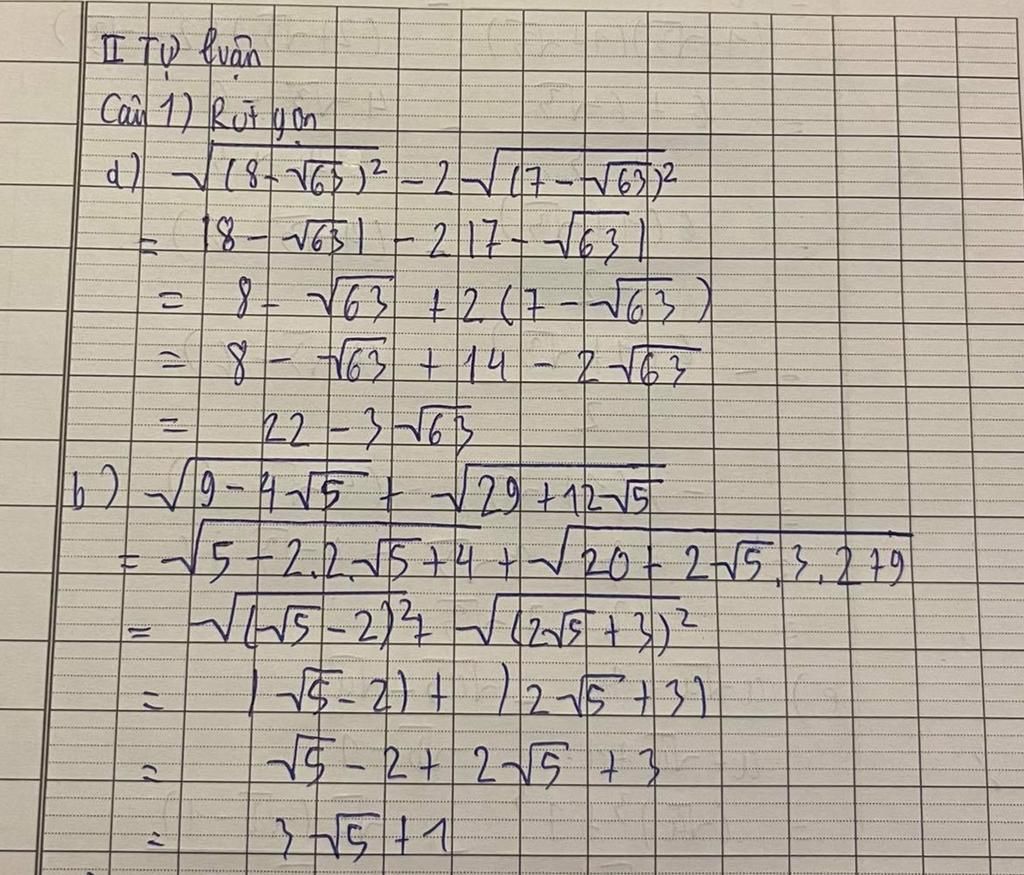 II Tự luận
Câu 1) Rút gọn
d) √(8-√63)² - 2√(7-√63)²
= |8-√63| - 2|7-√63|
= 8-√63 + 2(7-√63)
= 8-√63 + 14 - 2√63
= 22 - 3√63
b) √9-4√5 + √29+12√5
= √5-2.2.√5+4 + √20+2√5.3.2+9
= √(√5-2)² + √(2√5+3)²
= |√5-2| + |2√5+3|
= √5-2 + 2√5 + 3
= 3√5 + 1